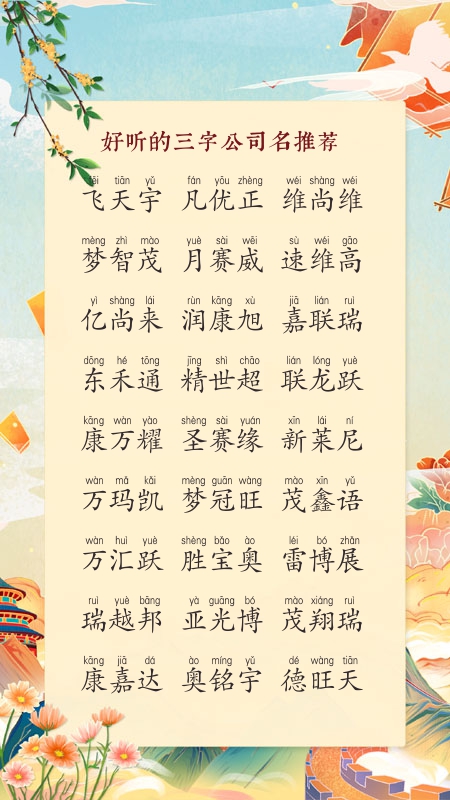 好听的三字公司名推荐
fēi tiān yǔ fán yōu zhèng wéi shàng wéi
飞天宇 凡优正 维尚维
mèng zhì mào yuè sài wēi sù wéi gāo
梦智茂 月赛威 速维高
yì shàng lái rùn kāng xù jiā lián ruì
亿尚来 润康旭 嘉联瑞
dōng hé tōng jīng shì chāo lián lóng yuè
东禾通 精世超 联龙跃
kāng wàn yào shèng sài yuán xīn lái ní
康万耀 圣赛缘 新莱尼
wàn mǎ kǎi mèng guān wàng mào xīn yǔ
万玛凯 梦冠旺 茂鑫语
wàn huì yuè shèng bǎo ào léi bó zhǎn
万汇跃 胜宝奥 雷博展
ruì yuè bāng yà guāng bó mào xiáng ruì
瑞越邦 亚光博 茂翔瑞
kāng jiā dá ào míng yǔ dé wàng tiān
康嘉达 奥铭宇 德旺天